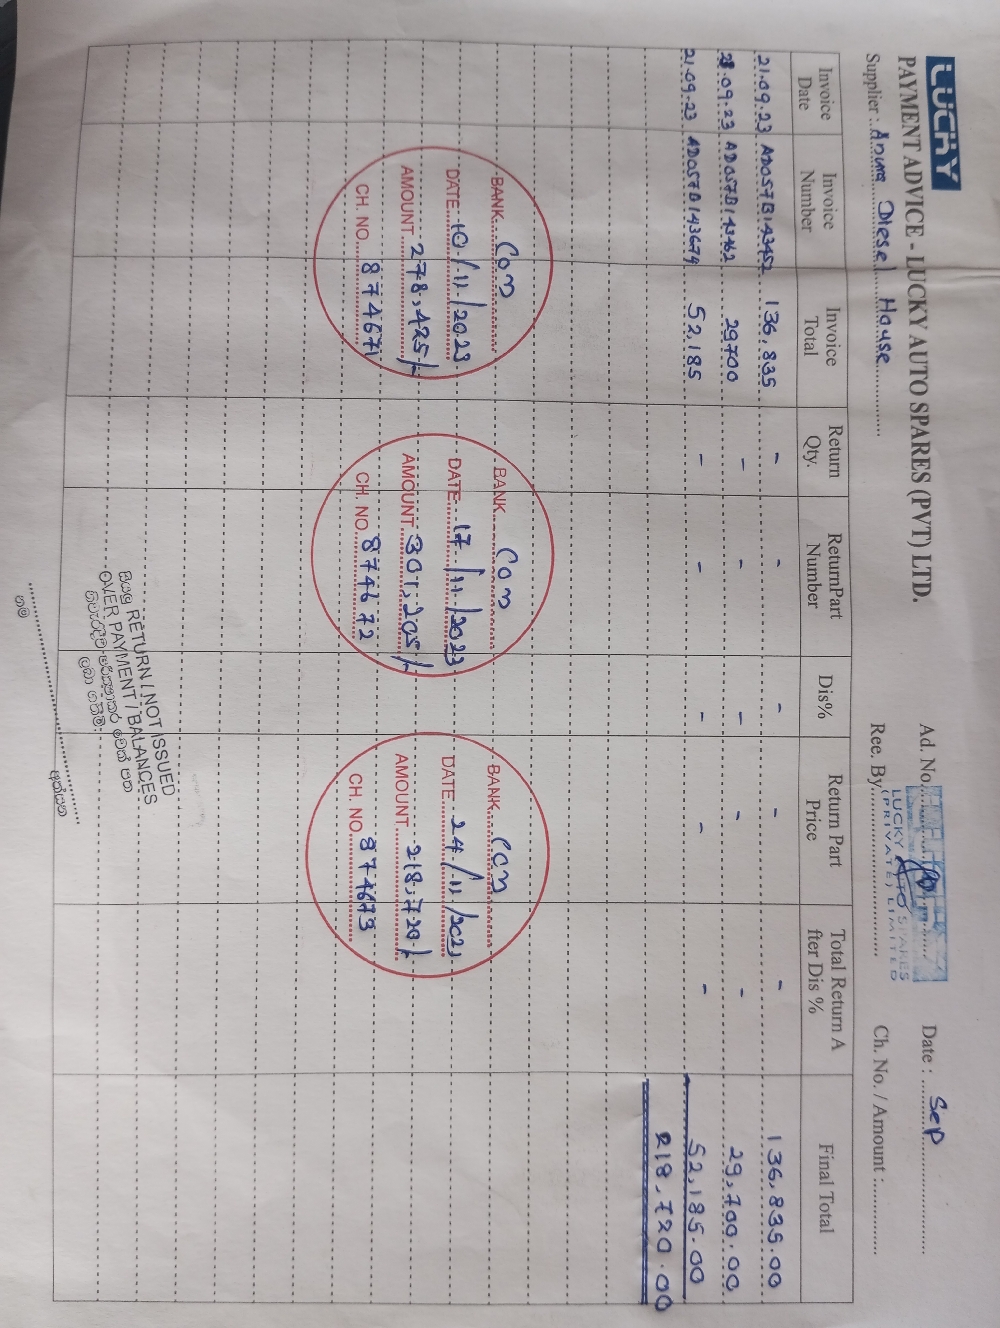 LUCKY
PAYMENT ADVICE - LUCKY AUTO SPARES (PVT) LTD.
Ad. No. Date : Sep
LUCKY AUTO SPARES
(PRIVATE) LIMITED
Supplier : Anura Diesel House Ree. By Ch. No. / Amount :
Invoice Date Invoice Number Invoice Total Return Qty. ReturnPart Number Dis% Return Part Price Total Return A fter Dis % Final Total
21.09.23 AD057B143452 136,835 - - - - - 136,835.00
28.09.23 AD057B143462 29700 - - - - - 29,700.00
21.09.23 AD057B143679 52,185 - - - - - 52,185.00
218,720.00
BANK Com
DATE 10/11/2023
AMOUNT 278,425/-
CH. NO. 874671
BANK Com
DATE 17/11/2023
AMOUNT 301,205/-
CH. NO. 874672
BANK Com
DATE 24/11/2023
AMOUNT 218,720/-
CH. NO. 874673
සියලු RETURN / NOT ISSUED
OVER PAYMENT / BALANCES
නම
අත්සන